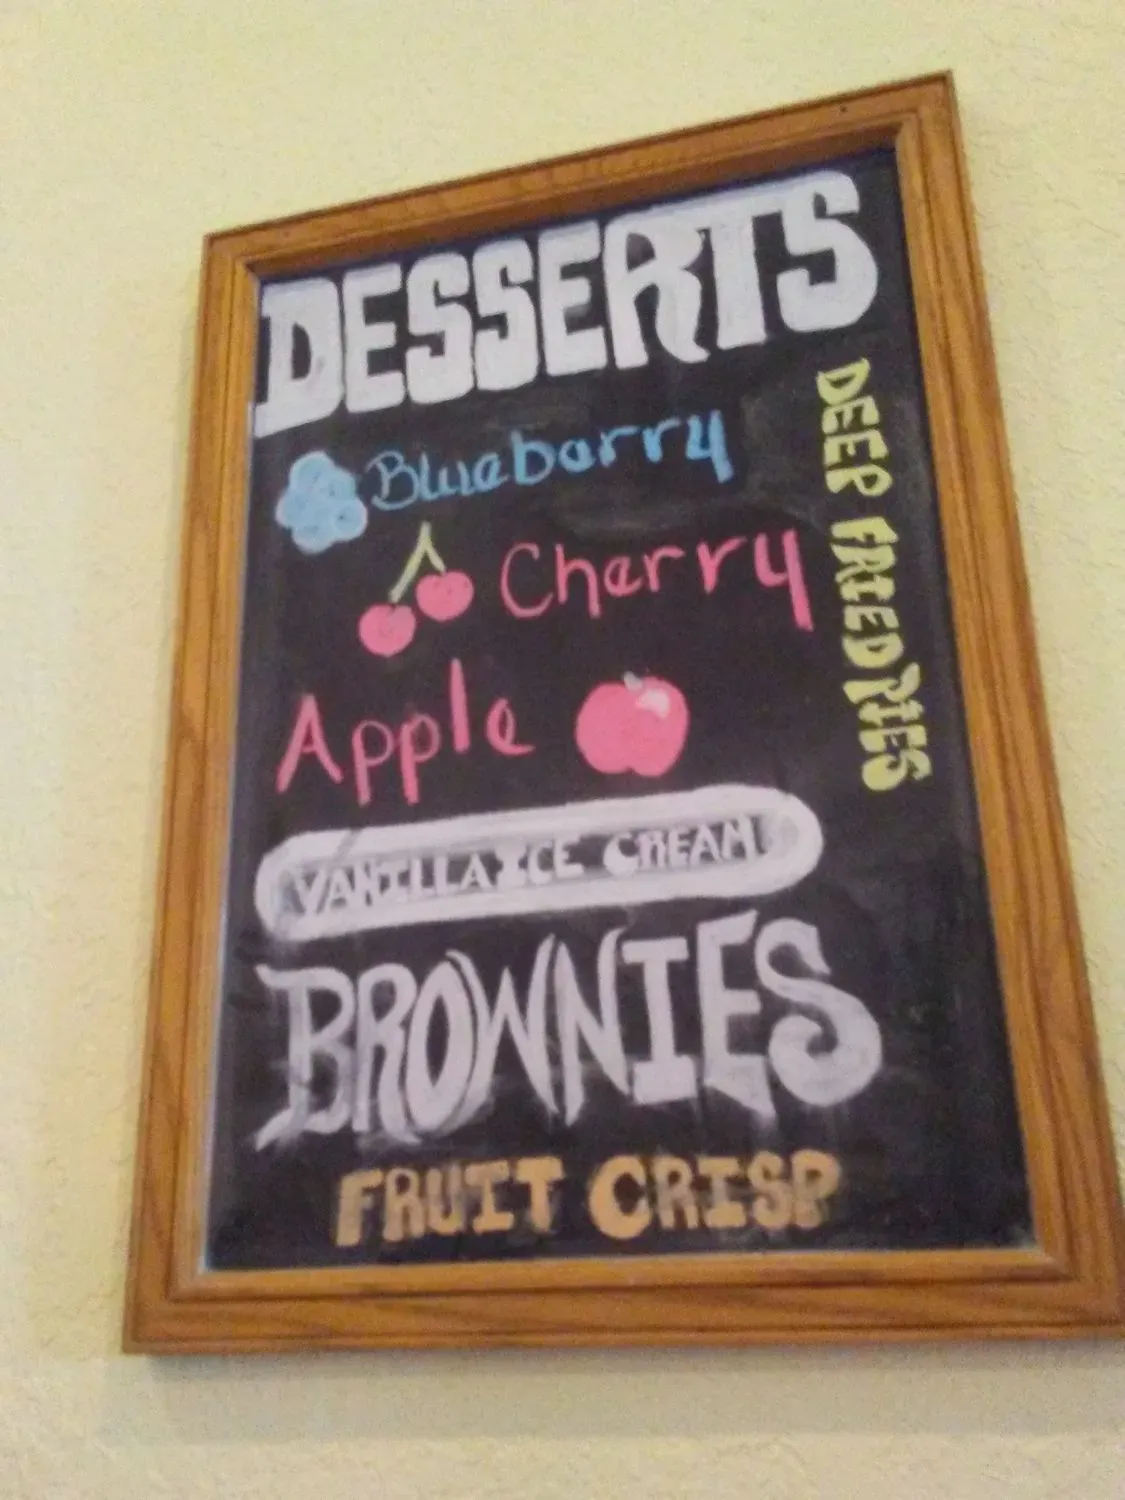 DESSERTS
Blueberry
Cherry
Apple
DEEP FRIED PIES
VANILLA ICE CREAM
BROWNIES
FRUIT CRISP